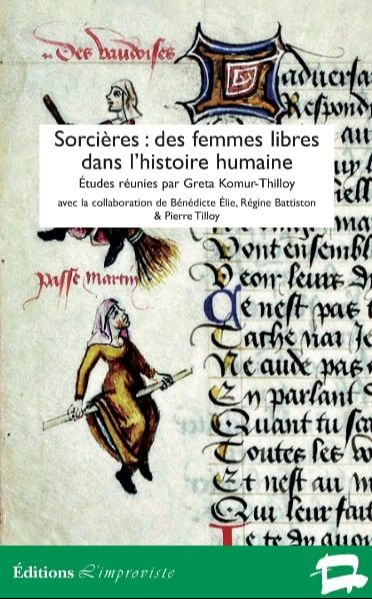 des vaudoises
Sorcières : des femmes libres
dans l'histoire humaine
Études réunies par Greta Komur-Thilloy
avec la collaboration de Bénédicte Élie, Régine Battiston
& Pierre Tilloy
passe martin
Ladversa
Respond
au
Vont ensembl
Veoir leurs d
Ce nest pas t
Tache nai Je
Ne aude pas
En parlant
Quant tu sca
Toutes les vo
Et nest au m
Qui leur fait
Je te dy quon
Éditions L'improviste